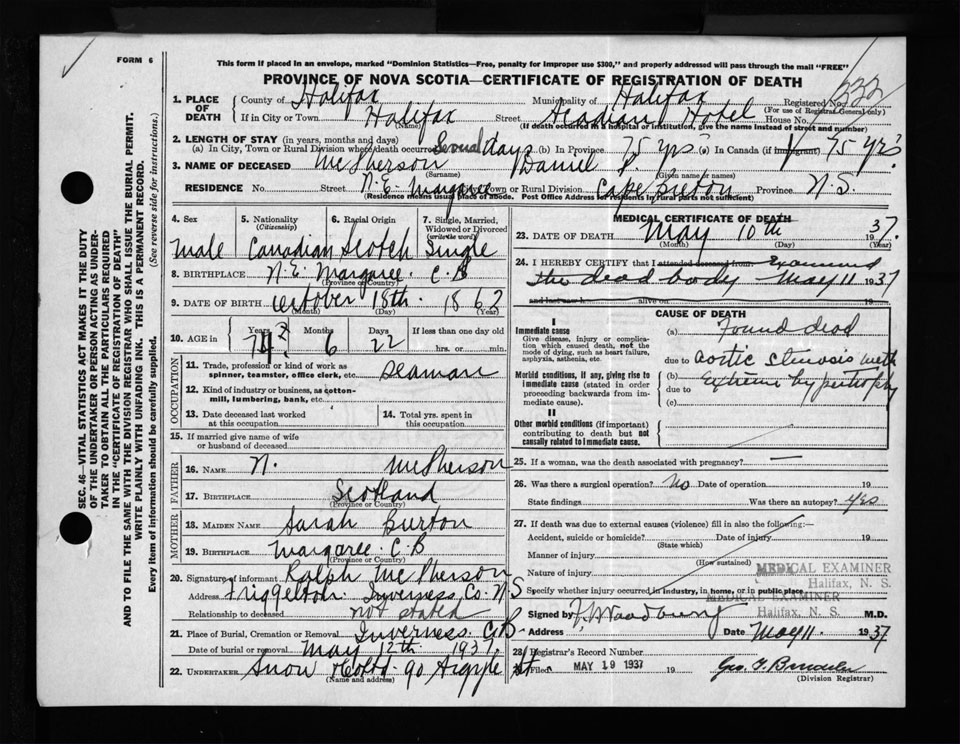 FORM 6
This form if placed in an envelope, marked "Dominion Statistics—Free, penalty for improper use $300," and properly addressed will pass through the mail "FREE"
PROVINCE OF NOVA SCOTIA—CERTIFICATE OF REGISTRATION OF DEATH
1. PLACE OF DEATH County of Halifax Municipality of Halifax Registered No. 332
(For use of Registrar General only)
If in City or Town Halifax Street Acadian Hotel House No.
(Name) (If death occurred in a hospital or institution, give the name instead of street and number)
2. LENGTH OF STAY (in years, months and days)
(a) In City, Town or Rural Division where death occurred Several days (b) In Province 75 yrs (c) In Canada (if immigrant) 75 yrs?
3. NAME OF DECEASED McPherson Daniel J.
(Surname) (Given name or names)
RESIDENCE No Street N.E. Margaree City, Town or Rural Division Cape Breton Province N.S.
(Residence means usual place of abode. Post Office Address for residents in rural parts not sufficient)
4. Sex Male
5. Nationality (Citizenship) Canadian
6. Racial Origin Scotch
7. Single, Married, Widowed or Divorced (write the word) Single
8. BIRTHPLACE N.E. Margaree. C.B
(Province or Country)
9. DATE OF BIRTH October 18th. 1862
(Month) (Day)
10. AGE in Years 74? Months 6 Days 22 If less than one day old hrs. or min.
OCCUPATION
11. Trade, profession or kind of work as spinner, teamster, office clerk, etc. Seaman
12. Kind of industry or business, as cotton-mill, lumbering, bank, etc.
13. Date deceased last worked at this occupation
14. Total yrs. spent in this occupation
15. If married give name of wife or husband of deceased
FATHER
16. NAME N. McPherson
17. BIRTHPLACE Scotland
(Province or Country)
MOTHER
18. MAIDEN NAME Sarah Burton
19. BIRTHPLACE Margaree. C.B
(Province or Country)
20. Signature of informant Ralph McPherson
Address Inverness Co. N S
Relationship to deceased not stated
21. Place of Burial, Cremation or Removal Inverness. C.B.
Date of burial or removal May 12th. 1937.
22. UNDERTAKER Snow & Co Ltd. 90 Argyle St.
(Name and address)
MEDICAL CERTIFICATE OF DEATH
23. DATE OF DEATH May 10th 1937.
(Month) (Day) (Year)
24. I HEREBY CERTIFY that I attended deceased from Examined
the dead body May 11 1937
and last saw h alive on 19
CAUSE OF DEATH
I
Immediate cause
Give disease, injury or complication which caused death, not the mode of dying, such as heart failure, asphyxia, asthenia, etc.
(a) Found dead
due to aortic stenosis with
Morbid conditions, if any, giving rise to immediate cause (stated in order proceeding backwards from immediate cause).
(b) Extreme hypertrophy
due to
(c)
II
Other morbid conditions (if important) contributing to death but not causally related to immediate cause.
25. If a woman, was the death associated with pregnancy? —
26. Was there a surgical operation? No Date of operation 19
State findings Was there an autopsy? yes
27. If death was due to external causes (violence) fill in also the following:—
Accident, suicide or homicide? Date of injury 19
(State which)
Manner of injury
(How sustained)
Nature of injury
MEDICAL EXAMINER
Halifax, N. S.
Specify whether injury occurred in industry, in home, or in public place
MEDICAL EXAMINER
Halifax, N. S.
Signed by Woodbury M.D.
Address Date May 11. 1937
28. Registrar's Record Number
Filed MAY 19 1937 19
(Division Registrar)
SEC. 46—VITAL STATISTICS ACT MAKES IT THE DUTY
OF THE UNDERTAKER OR PERSON ACTING AS UNDER-
TAKER TO OBTAIN ALL THE PARTICULARS REQUIRED
IN THE "CERTIFICATE OF REGISTRATION OF DEATH"
AND TO FILE THE SAME WITH THE DIVISION REGISTRAR WHO SHALL ISSUE THE BURIAL PERMIT.
WRITE PLAINLY WITH UNFADING INK. THIS IS A PERMANENT RECORD.
Every item of information should be carefully supplied. (See reverse side for instructions.)